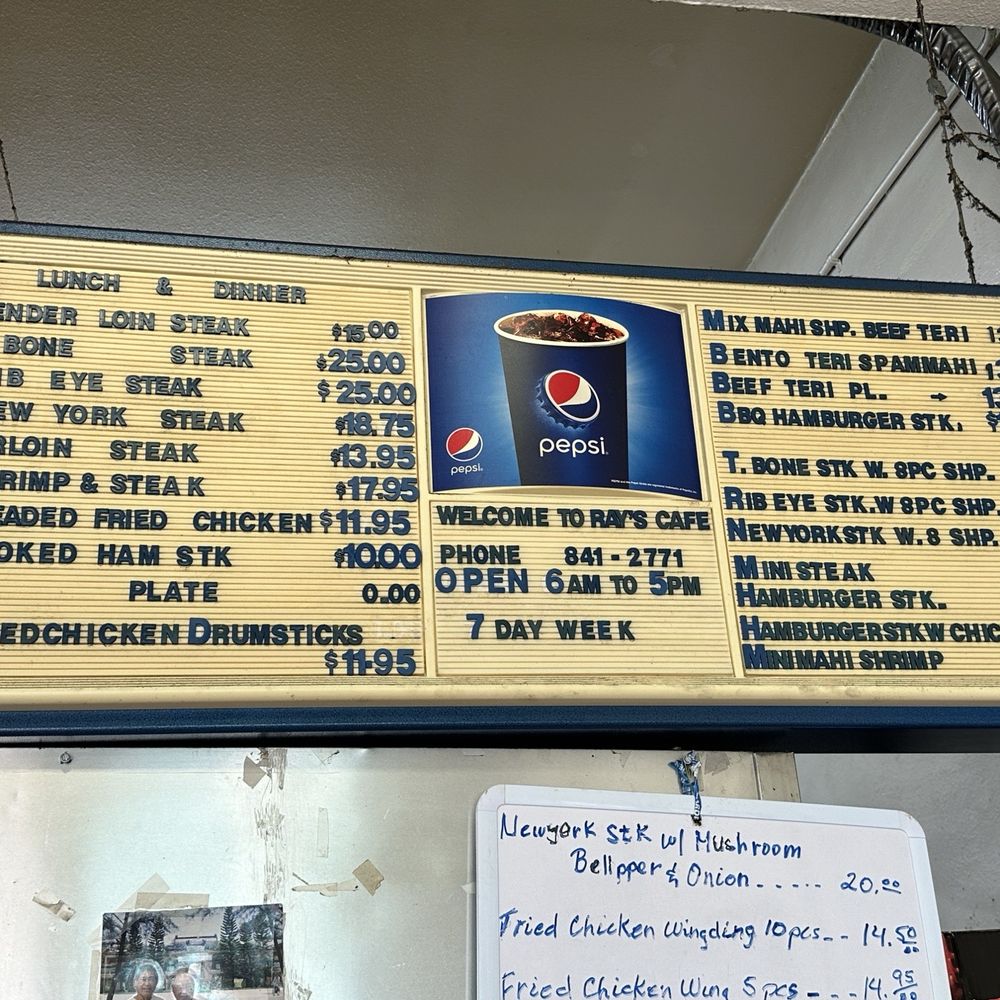 LUNCH & DINNER
ENDER LOIN STEAK $15.00
BONE STEAK $25.00
IB EYE STEAK $25.00
EW YORK STEAK $18.75
RLOIN STEAK $13.95
RIMP & STEAK $17.95
EADED FRIED CHICKEN $11.95
OKED HAM STK $10.00
PLATE 0.00
EDCHICKEN DRUMSTICKS
$11.95
pepsi
pepsi
WELCOME TO RAY'S CAFE
PHONE 841-2771
OPEN 6AM TO 5PM
7 DAY WEEK
MIX MAHI SHP. BEEF TERI
BENTO TERI SPAMMAHI
BEEF TERI PL. →
BBQ HAMBURGER STK.
T. BONE STK W. 8PC SHP.
RIB EYE STK.W 8PC SHP.
NEWYORKSTK W. 8 SHP.
MINI STEAK
HAMBURGER STK.
HAMBURGERSTKW CHIC
MINIMAHI SHRIMP
Newyork Stk w/ Mushroom
Bellpper & Onion...... 20.00
Fried Chicken Wingding 10pcs-- 14.50
Fried Chicken Wing 5pcs --- 14.95